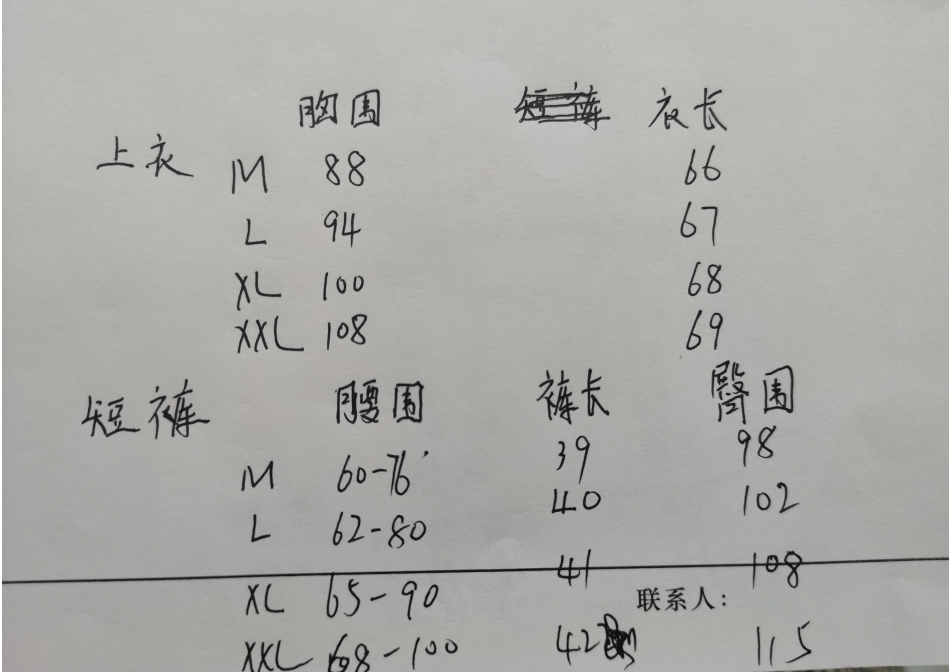 胸围 衣长
上衣 M 88 66
L 94 67
XL 100 68
XXL 108 69
短裤 腰围 裤长 臀围
M 60-76 39 98
L 62-80 40 102
XL 65-90 41 108
联系人:
XXL 68-100 42 115